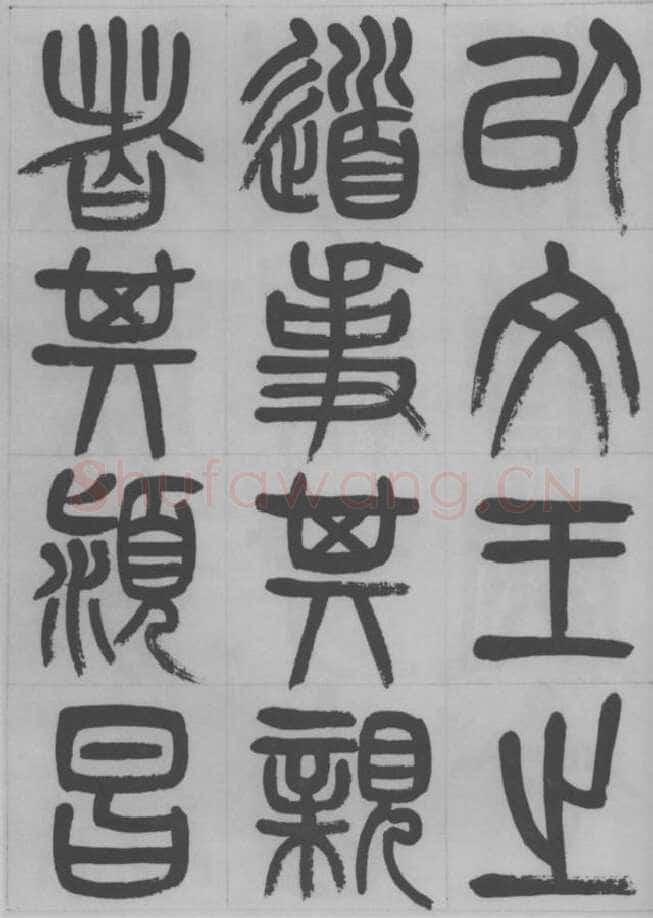 以文王之
道事其親
者其潁昌
Shufawang.CN